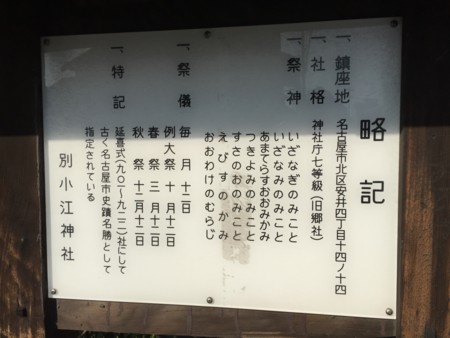 略記
一、鎮座地　名古屋市北区安井四丁目十四ノ十四
一、社格　神社庁七等級（旧郷社）
一、祭神　いざなぎのみこと
いざなみのみこと
あまてらすおおみかみ
つきよみのみこと
すさのおのみこと
えびすのかみ
おおわけのむらじ
一、祭儀　毎月　十二日
例大祭　十月十二日
春祭　三月十二日
秋祭　十二月十二日
一、特記　延喜式（九〇一〜九二二）社にして
古く名古屋市史蹟名勝として
指定されている
別小江神社